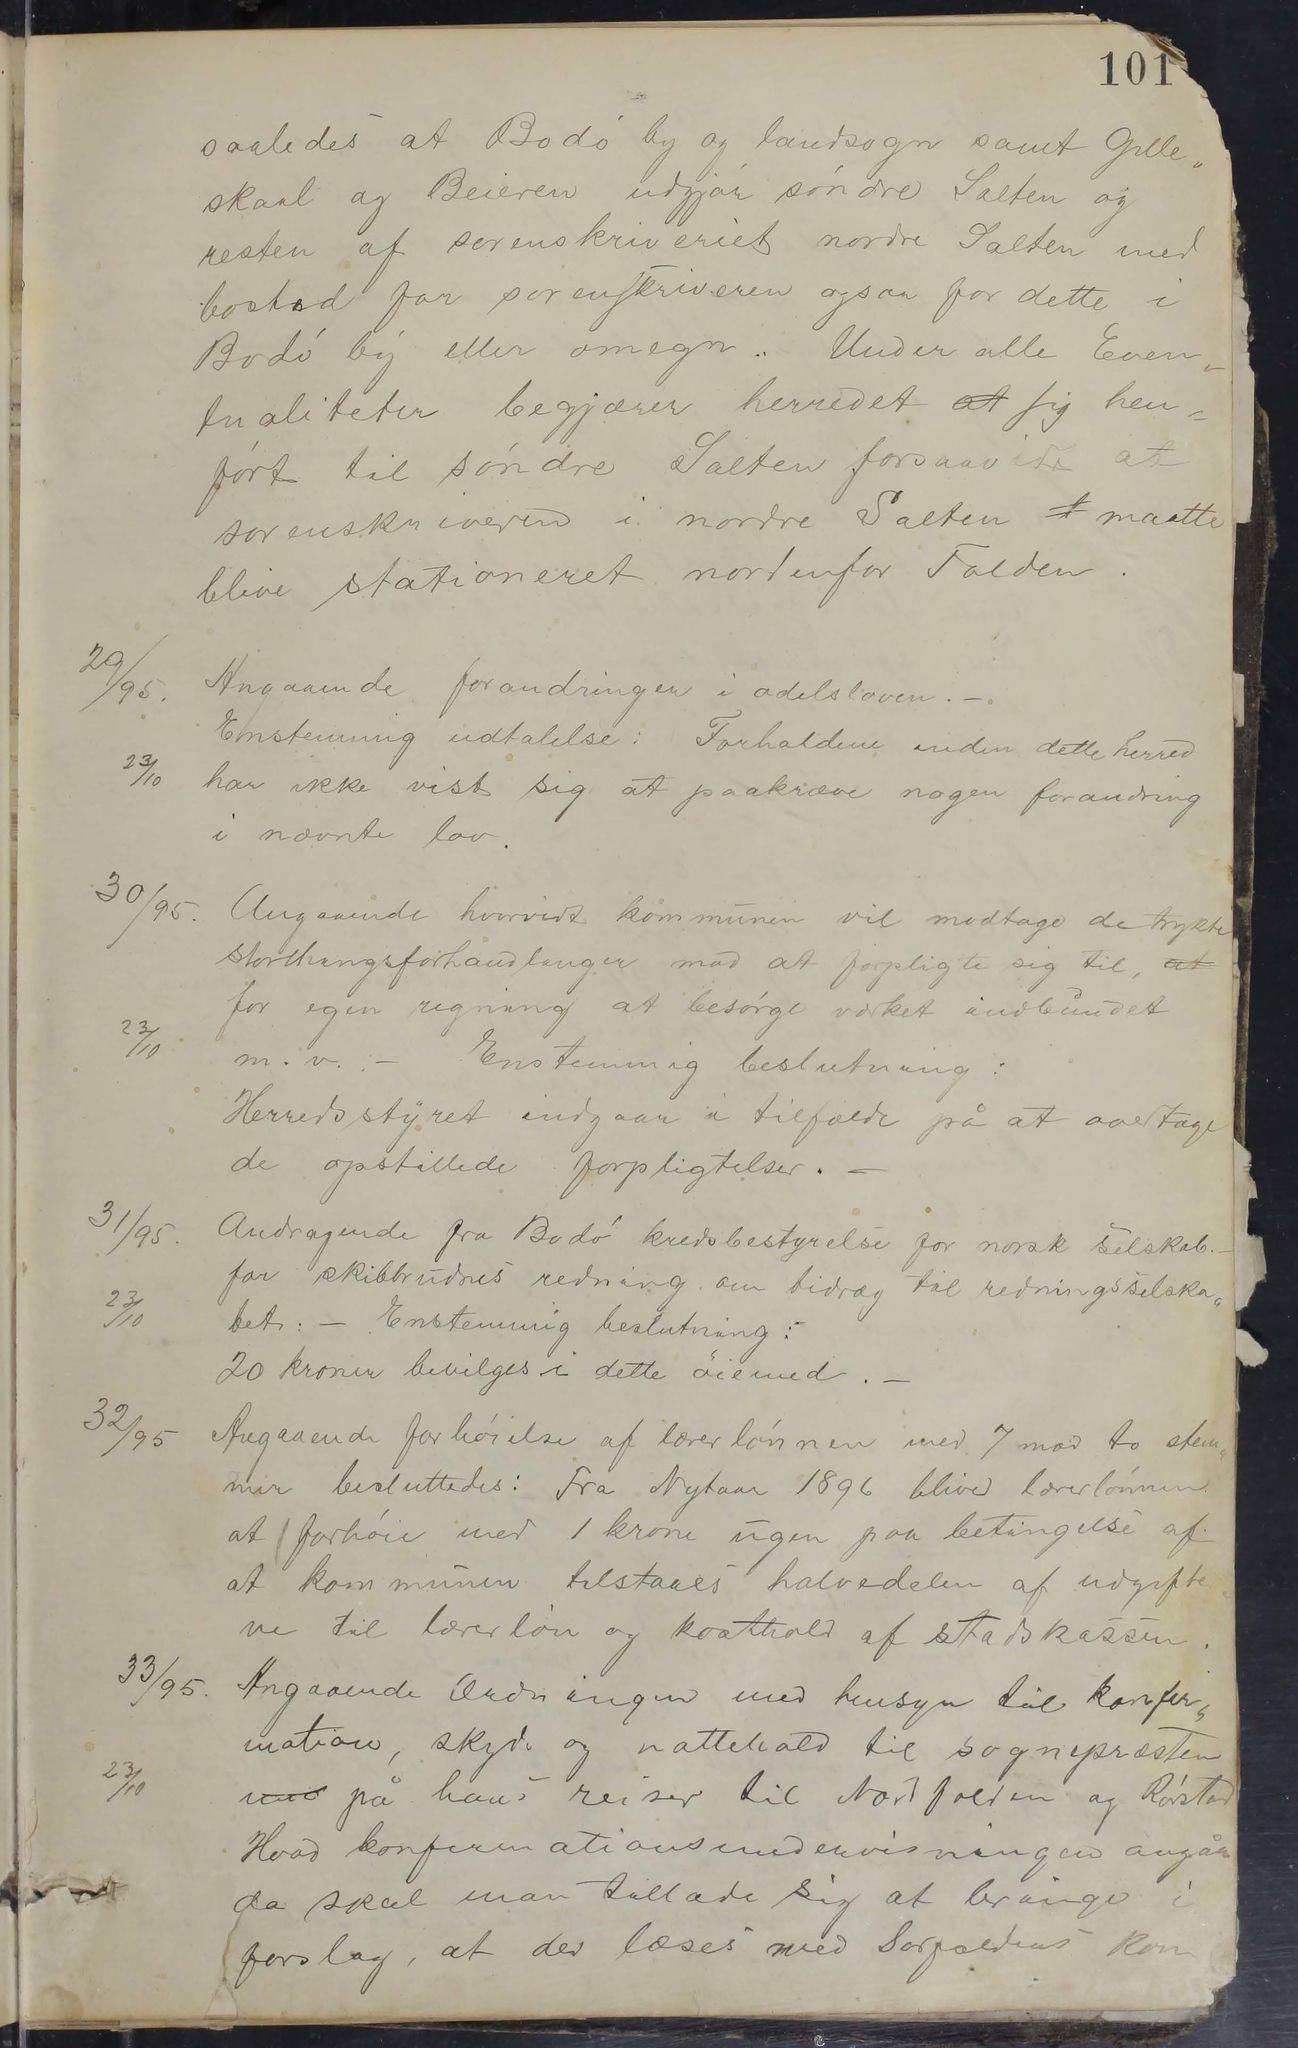 101
saaledes at Bodó by og landsogn samt Gille„
skaal og Beieren udgjør söndre Salten og
resten af sorenskriveriet nordre Salten med
bosted for sorenskriveren ogsaa for dette i
Bodó by eller omegn. Under alle Even„
tualiteter begjærer herredet at sig hen„
fört til söndre Salten forsaavidt at
sorenskriveren i nordre Salten f maatte
blive stationeret nordenfor Folden.
29/95. Angaaende forandringer i odelsloven. –
Enstemmig udtalelse: Forholdene inden dette herred
23/10 har ikke vist sig at paakræve nogen forandring
i nævnte lov.
30/95. Angaaende hvorvidt kommunen vil modtage de trykte
storthingsforhandlinger mod at forpligte sig til, at
for egen regning at besörge værket indbundet
23/10 m.v. – Enstemmig beslutning:
Herredsstyret indgaar i tilfælde på at overtage
de opstillede forpligtelser. –
31/95. Andragende fra Bodó kredsbestyrelse for norsk selskab –
for skibbrudnes redning om bidrag til redningsselska„
23/10 bet: – Enstemmig beslutning:
20 kroner bevilges i dette öiemed. –
32/95 Angaaende forhöielse af lærerlönnen med 7 mod to stem„
mer besluttedes: Fra Nytaar 1896 bliver lærerlönnen
at forhöie med 1 krone ugen paa betingelse af
at kommunen tilstaaes halvedelen af udgifte
ne til lærerlön og kosthold af stadskassen.
33/95. Angaaende Ordningen med hensyn til konfir„
mation, skyds og nattehold til sognepræsten
23/10 på hans reiser til Nordfolden og Rörstad
Hvad konfirmationsundervisningen angår
da skal man tillade sig at bringe i
forslag, at der læses med Sörfoldens kon